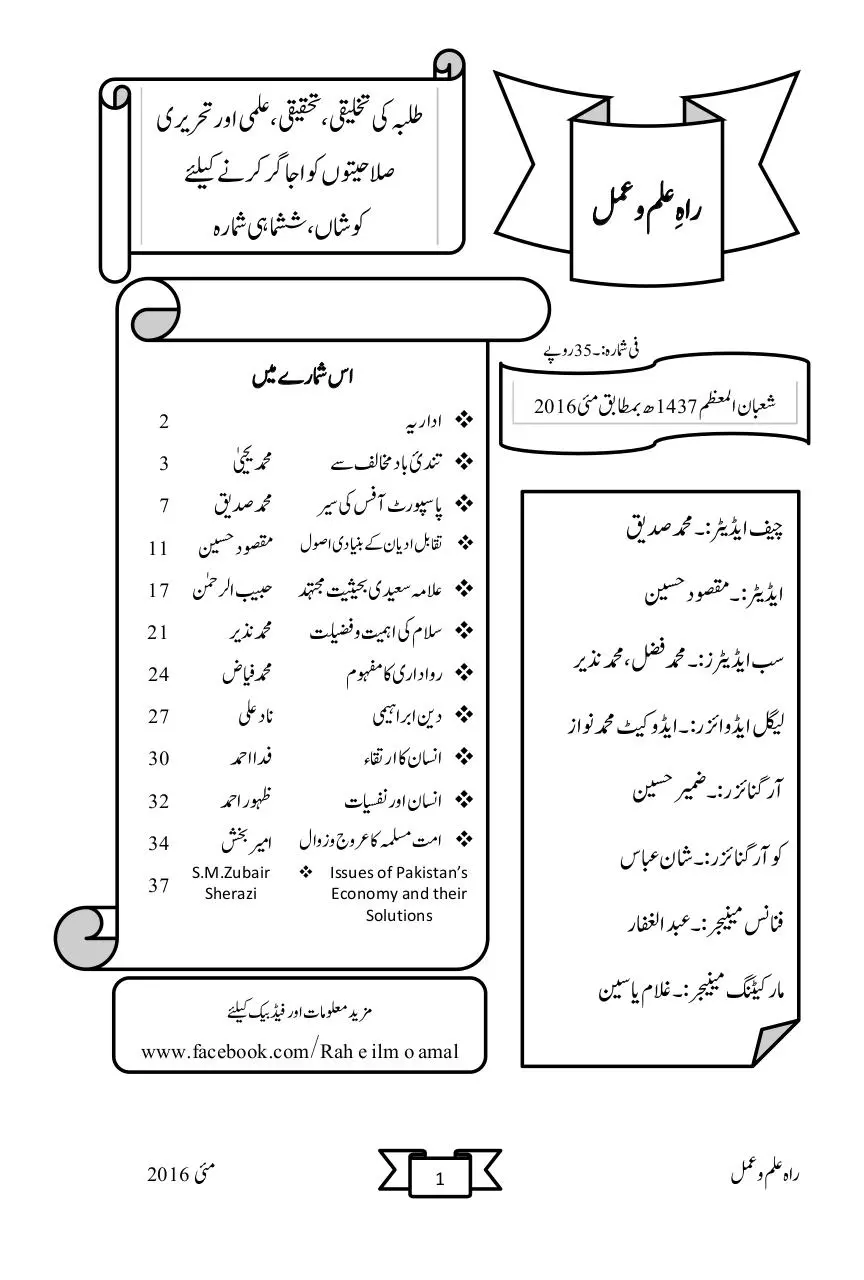 راہِ علم و عمل
طلبہ کی تخلیقی، تحقیقی، علمی اور تحریری
صلاحیتوں کو اجاگر کرنے کیلئے
کوشاں، ششماہی شمارہ
فی شمارہ:۔35روپے
شعبان المعظم 1437ھ بمطابق مئی 2016
چیف ایڈیٹر:۔ محمد صدیق
ایڈیٹر:۔ مقصود حسین
سب ایڈیٹرز:۔ محمد فضل، محمد نذیر
لیگل ایڈوائزر:۔ ایڈوکیٹ محمد نواز
آرگنائزر:۔ ضمیر حسین
کو آرگنائزر:۔ شان عباس
فنانس مینیجر:۔ عبد الغفار
مارکیٹنگ مینیجر:۔ غلام یاسین
اس شمارے میں
❖ اداریہ 2
❖ تندئ باد مخالف سے محمد یحییٰ 3
❖ پاسپورٹ آفس کی سیر محمد صدیق 7
❖ تقابل ادیان کے بنیادی اصول مقصود حسین 11
❖ علامہ سعیدی بحیثیت مجتہد حبیب الرحمٰن 17
❖ سلام کی اہمیت و فضیلت محمد نذیر 21
❖ رواداری کا مفہوم محمد فیاض 24
❖ دین ابراہیمی ناد علی 27
❖ انسان کا ارتقاء فدا احمد 30
❖ انسان اور نفسیات ظہور احمد 32
❖ امت مسلمہ کا عروج و زوال امیر بخش 34
❖ Issues of Pakistan’s S.M.Zubair 37
Economy and their Sherazi
Solutions
مزید معلومات اور فیڈبیک کیلئے
www.facebook.com/Rah e ilm o amal
راہ علم و عمل 1 مئی 2016